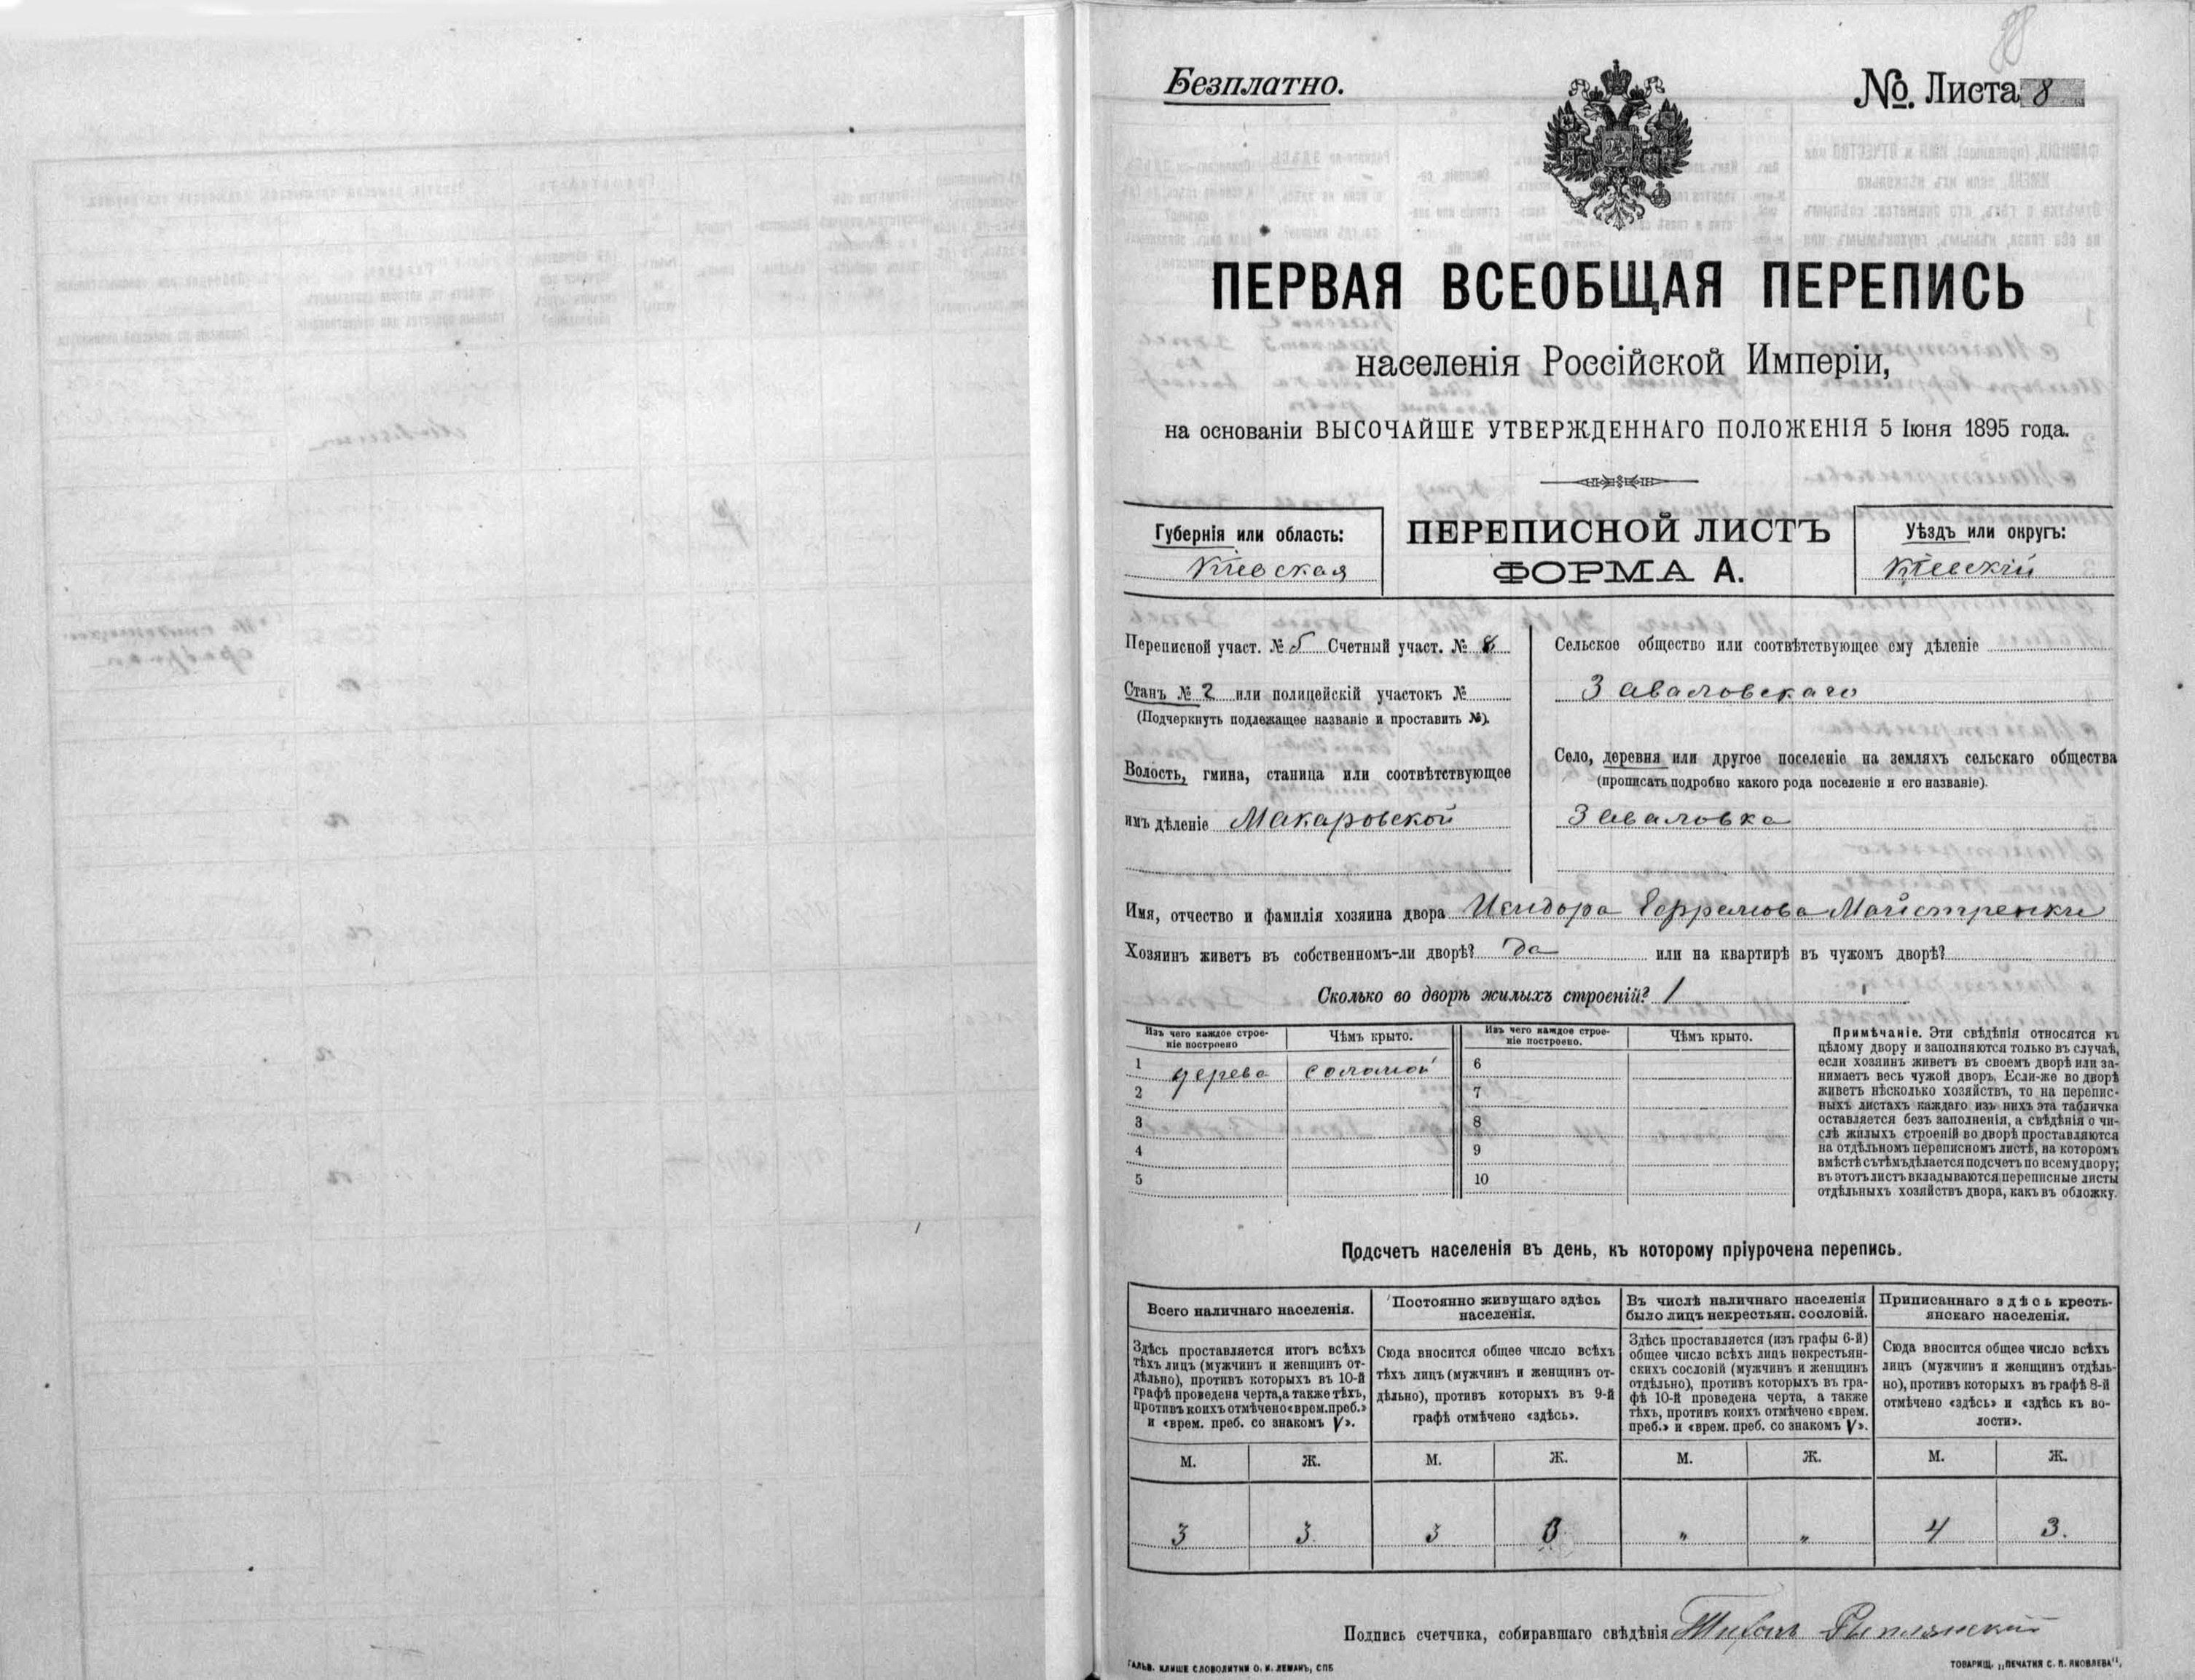 88
Безплатно.
№. Листа 8
ПЕРВАЯ ВСЕОБЩАЯ ПЕРЕПИСЬ
населенія Россійской Имперіи,
на основаніи ВЫСОЧАЙШЕ УТВЕРЖДЕННАГО ПОЛОЖЕНІЯ 5 Іюня 1895 года.
Губернія или область:
Кіевская
ПЕРЕПИСНОЙ ЛИСТЪ
ФОРМА А.
Уѣздъ или округъ:
Кіевскій
Переписной участ. № 5 Счетный участ. № 8
Станъ № 2 или полицейскій участокъ №
(Подчеркнуть подлежащее названіе и проставить №).
Волость, гмина, станица или соотвѣтствующее
имъ дѣленіе Макаровской
Сельское общество или соотвѣтствующее ему дѣленіе
Заваловскаго
Село, деревня или другое поселеніе на земляхъ сельскаго общества
(прописать подробно какого рода поселеніе и его названіе).
Заваловка
Имя, отчество и фамилія хозяина двора Исидора Ефремова Майстренки
Хозяинъ живетъ въ собственномъ-ли дворѣ? Да или на квартирѣ въ чужомъ дворѣ?
Сколько во дворѣ жилыхъ строеній? 1
Изъ чего каждое строе-
ніе построено
Чѣмъ крыто.
Изъ чего каждое строе-
ніе построено.
Чѣмъ крыто.
1 дерева соломой 6
2 7
3 8
4 9
5 10
Примѣчаніе. Эти свѣдѣнія относятся къ
цѣлому двору и заполняются только въ случаѣ,
если хозяинъ живетъ въ своемъ дворѣ или за-
нимаетъ весь чужой дворъ. Если-же во дворѣ
живетъ нѣсколько хозяйствъ, то на перепис-
ныхъ листахъ каждаго изъ нихъ эта табличка
оставляется безъ заполненія, а свѣдѣнія о чи-
слѣ жилыхъ строеній во дворѣ проставляются
на отдѣльномъ переписномъ листѣ, на которомъ
вмѣстѣ съ тѣмъ дѣлается подсчетъ по всему двору;
въ этотъ листъ вкладываются переписные листы
отдѣльныхъ хозяйствъ двора, какъ въ обложку.
Подсчетъ населенія въ день, къ которому пріурочена перепись.
Всего наличнаго населенія.
Здѣсь проставляется итогъ всѣхъ
тѣхъ лицъ (мужчинъ и женщинъ от-
дѣльно), противъ которыхъ въ 10-й
графѣ проведена черта, а также тѣхъ,
противъ коихъ отмѣчено «врем. преб.»
и «врем. преб. со знакомъ V».
Постоянно живущаго здѣсь
населенія.
Сюда вносится общее число всѣхъ
тѣхъ лицъ (мужчинъ и женщинъ от-
дѣльно), противъ которыхъ въ 9-й
графѣ отмѣчено «здѣсь».
Въ числѣ наличнаго населенія
было лицъ некрестьян. сословій.
Здѣсь проставляется (изъ графы 6-й)
общее число всѣхъ лицъ некрестьян-
скихъ сословій (мужчинъ и женщинъ
отдѣльно), противъ которыхъ въ гра-
фѣ 10-й проведена черта, а также
тѣхъ, противъ коихъ отмѣчено «врем.
преб.» и «врем. преб. со знакомъ V».
Приписаннаго здѣсь кресть-
янскаго населенія.
Сюда вносится общее число всѣхъ
лицъ (мужчинъ и женщинъ отдѣль-
но), противъ которыхъ въ графѣ 8-й
отмѣчено «здѣсь» и «здѣсь къ во-
лости».
М. Ж. М. Ж. М. Ж. М. Ж.
3 3. 3 3 „ „ 4 3.
Подпись счетчика, собиравшаго свѣдѣнія
ГАЛЬВ. КЛИШЕ СЛОВОЛИТНИ О. И. ЛЕМАНЪ, СПБ
ТОВАРИЩ. „ПЕЧАТНЯ С. П. ЯКОВЛЕВА“.